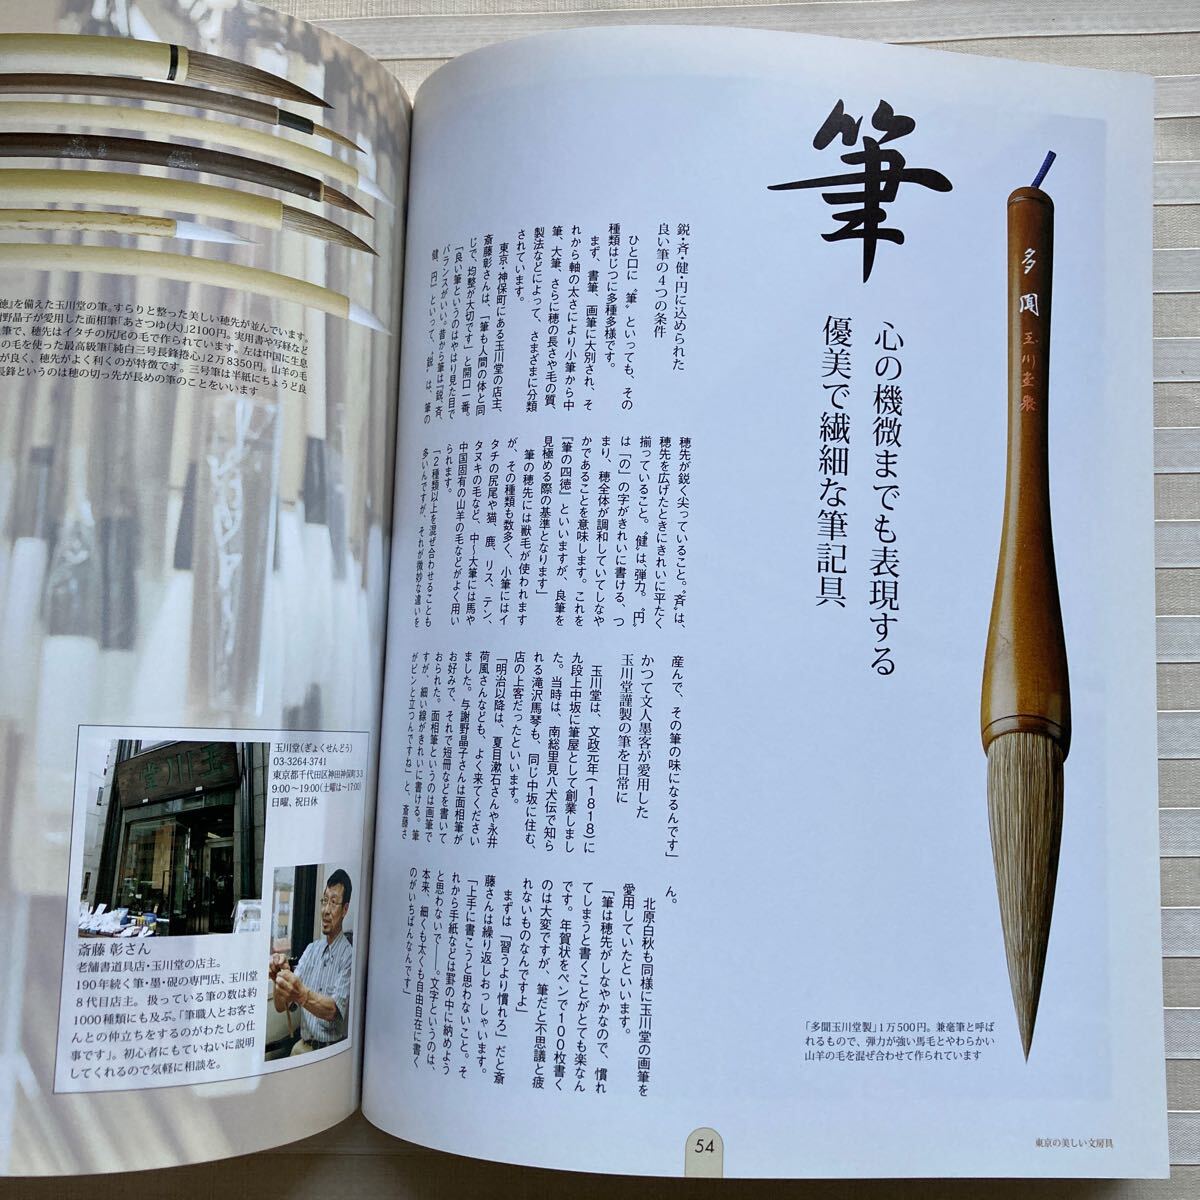 筆
心の機微までも表現する
優美で繊細な筆記具
多聞 玉川堂製
鋭・斉・健・円に込められた
良い筆の4つの条件
ひと口に〝筆〟といっても、その
種類はじつに多種多様です。
まず、書筆、画筆に大別され、そ
れから軸の太さにより小筆から中
筆、大筆、さらに穂の長さや毛の質、
製法などによって、さまざまに分類
されています。
東京・神保町にある玉川堂の店主、
斎藤彰さんは、「筆も人間の体と同
じで、均整が大切です」と開口一番。
「良い筆というのはやはり見た目で
バランスがいい。昔から筆は『鋭、斉、
健、円』といって、〝鋭〟は、筆の
穂先が鋭く尖っていること。〝斉〟は、
穂先を広げたときにきれいに平たく
揃っていること。〝健〟は、弾力。〝円〟
は「の」の字がきれいに書ける、つ
まり、穂全体が調和していてしなや
かであることを意味します。これを
『筆の四徳』といいますが、良筆を
見極める際の基準となります」
筆の穂先には獣毛が使われます
が、その種類も数多く、小筆にはイ
タチの尻尾や猫、鹿、リス、テン、
タヌキの毛など、中〜大筆には馬や
中国固有の山羊の毛などがよく用い
られます。
「2種類以上を混ぜ合わせることも
多いんですが、それが微妙な違いを
産んで、その筆の味になるんです」
かつて文人墨客が愛用した
玉川堂謹製の筆を日常に
玉川堂は、文政元年（1818）に
九段上中坂に筆屋として創業しまし
た。当時は、南総里見八犬伝で知ら
れる滝沢馬琴も、同じ中坂に住む、
店の上客だったといいます。
「明治以降は、夏目漱石さんや永井
荷風さんなども、よく来てください
ました。与謝野晶子さんは面相筆が
お好みで、それで短冊などを書いて
おられた。面相筆というのは画筆で
すが、細い線がきれいに書ける。筆
がピンと立つんですね」と、斎藤さ
ん。
北原白秋も同様に玉川堂の画筆を
愛用していたといいます。
「筆は穂先がしなやかなので、慣れ
てしまうと書くことがとても楽なん
です。年賀状をペンで100枚書く
のは大変ですが、筆だと不思議と疲
れないものなんですよ」
まずは「習うより慣れろ」だと斎
藤さんは繰り返しおっしゃいます。
「上手に書こうと思わないこと。そ
れから手紙などは罫の中に納めよう
と思わないで――。文字というのは、
本来、細くも太くも自由自在に書く
のがいちばんなんです」
「多聞玉川堂製」1万500円。兼毫筆と呼ば
れるもので、弾力が強い馬毛とやわらかい
山羊の毛を混ぜ合わせて作られています
54
東京の美しい文房具
徳』を備えた玉川堂の筆。すらりと整った美しい穂先が並んでいます。
謝野晶子が愛用した面相筆「あさつゆ(大)」2100円。実用書や写経など
筆で、穂先はイタチの尻尾の毛で作られています。左は中国に生息
の毛を使った最高級筆「純白三号長鋒捲心」2万8350円。山羊の毛
が良く、穂先がよく利くのが特徴です。三号筆は半紙にちょうど良
長鋒というのは穂の切っ先が長めの筆のことをいいます
玉川堂
玉川堂（ぎょくせんどう）
03-3264-3741
東京都千代田区神田神保町3-3
9:00〜19:00（土曜は〜17:00）
日曜、祝日休
斎藤 彰さん
老舗書道具店・玉川堂の店主。
190年続く筆・墨・硯の専門店、玉川堂
8代目店主。扱っている筆の数は約
1000種類にも及ぶ。「筆職人とお客さ
んとの仲立ちをするのがわたしの仕
事です」。初心者にもていねいに説明
してくれるので気軽に相談を。